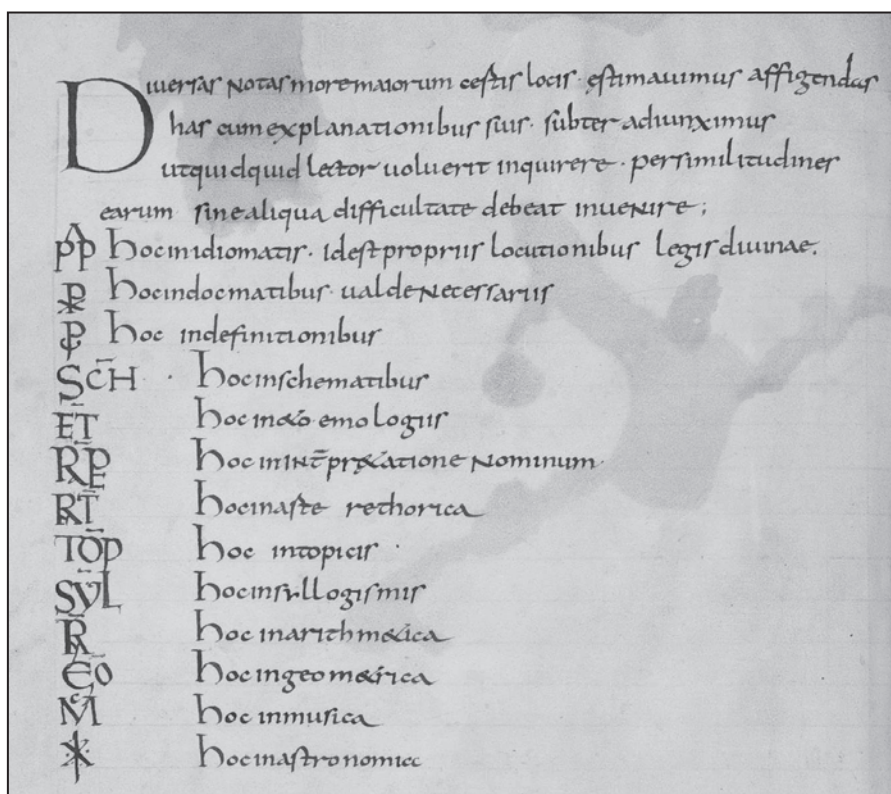 Diuersas notas more maiorum certis locis · ęstimauimus affigendas
has cum explanationibus suis · subter adiunximus
ut quidquid lector uoluerit inquirere · per similitudines
earum sine aliqua difficultate debeat inuenire ;
PP hoc in idiomatis · id est propriis locutionibus legis diuinae.
hoc in docmatibus · ualde necessariis
hoc in definitionibus
SCH · hoc in schematibus
ET hoc in
RP hoc in int̄pr&atione nominum
RT hoc in arte rethorica
TOP hoc in topicis ·
SYL hoc in syllogismis
hoc in arithm&ica
hoc in geom&rica
M hoc in musica
hoc in astronomia